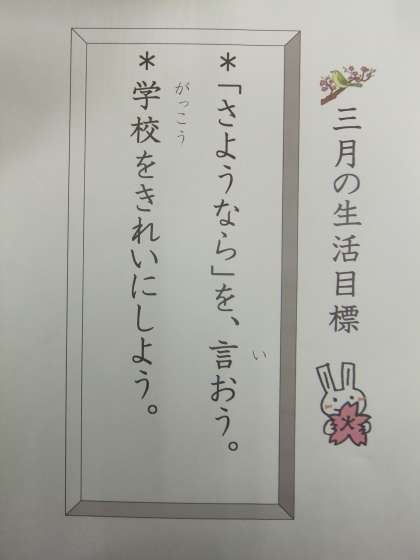 三月の生活目標
*「さようなら」を、言おう。
い
*学校をきれいにしよう。
がっこう